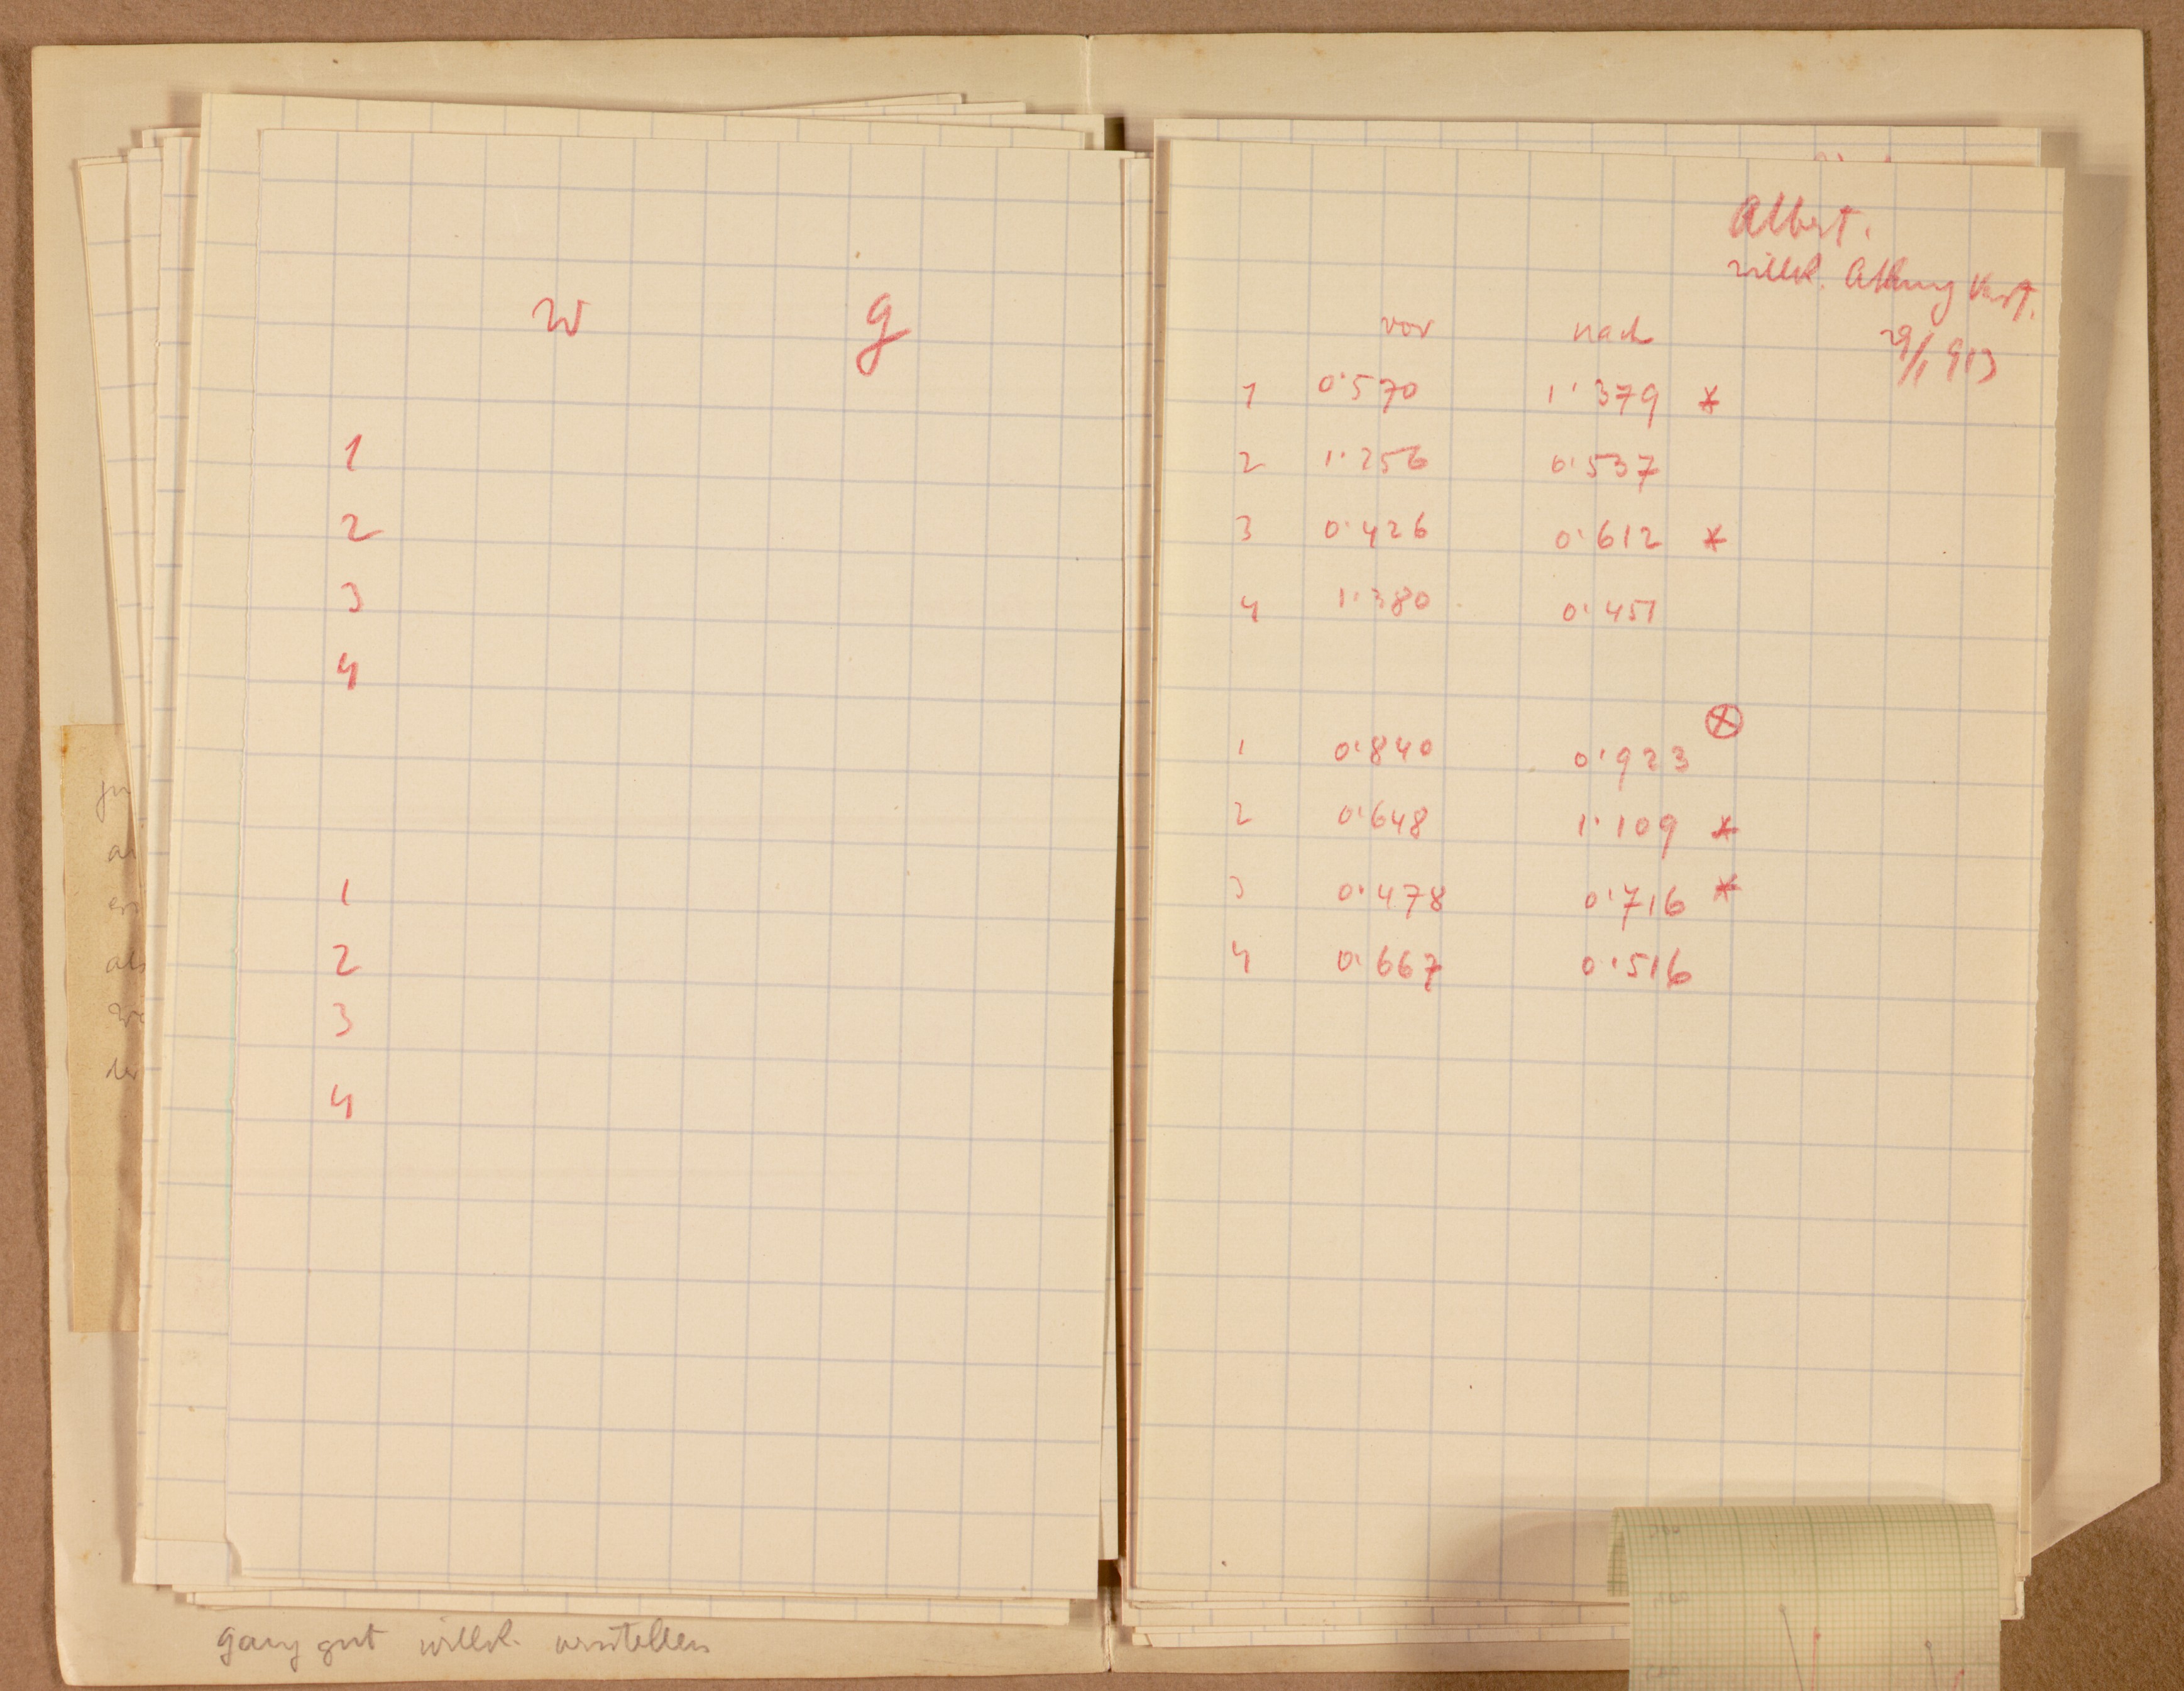 w g
1
2
3
4
1
2
3
4
ganz gut willk. verstellen
Albert.
willk. Atmung Verst.
29/1 913
vor nach
1 0·570 1·379 *
2 1·256 0·537
3 0·426 0·612 *
4 1·380 0·451
⊗
1 0·840 0·923
2 0·648 1·109 *
3 0·478 0·716 *
4 0·667 0·516